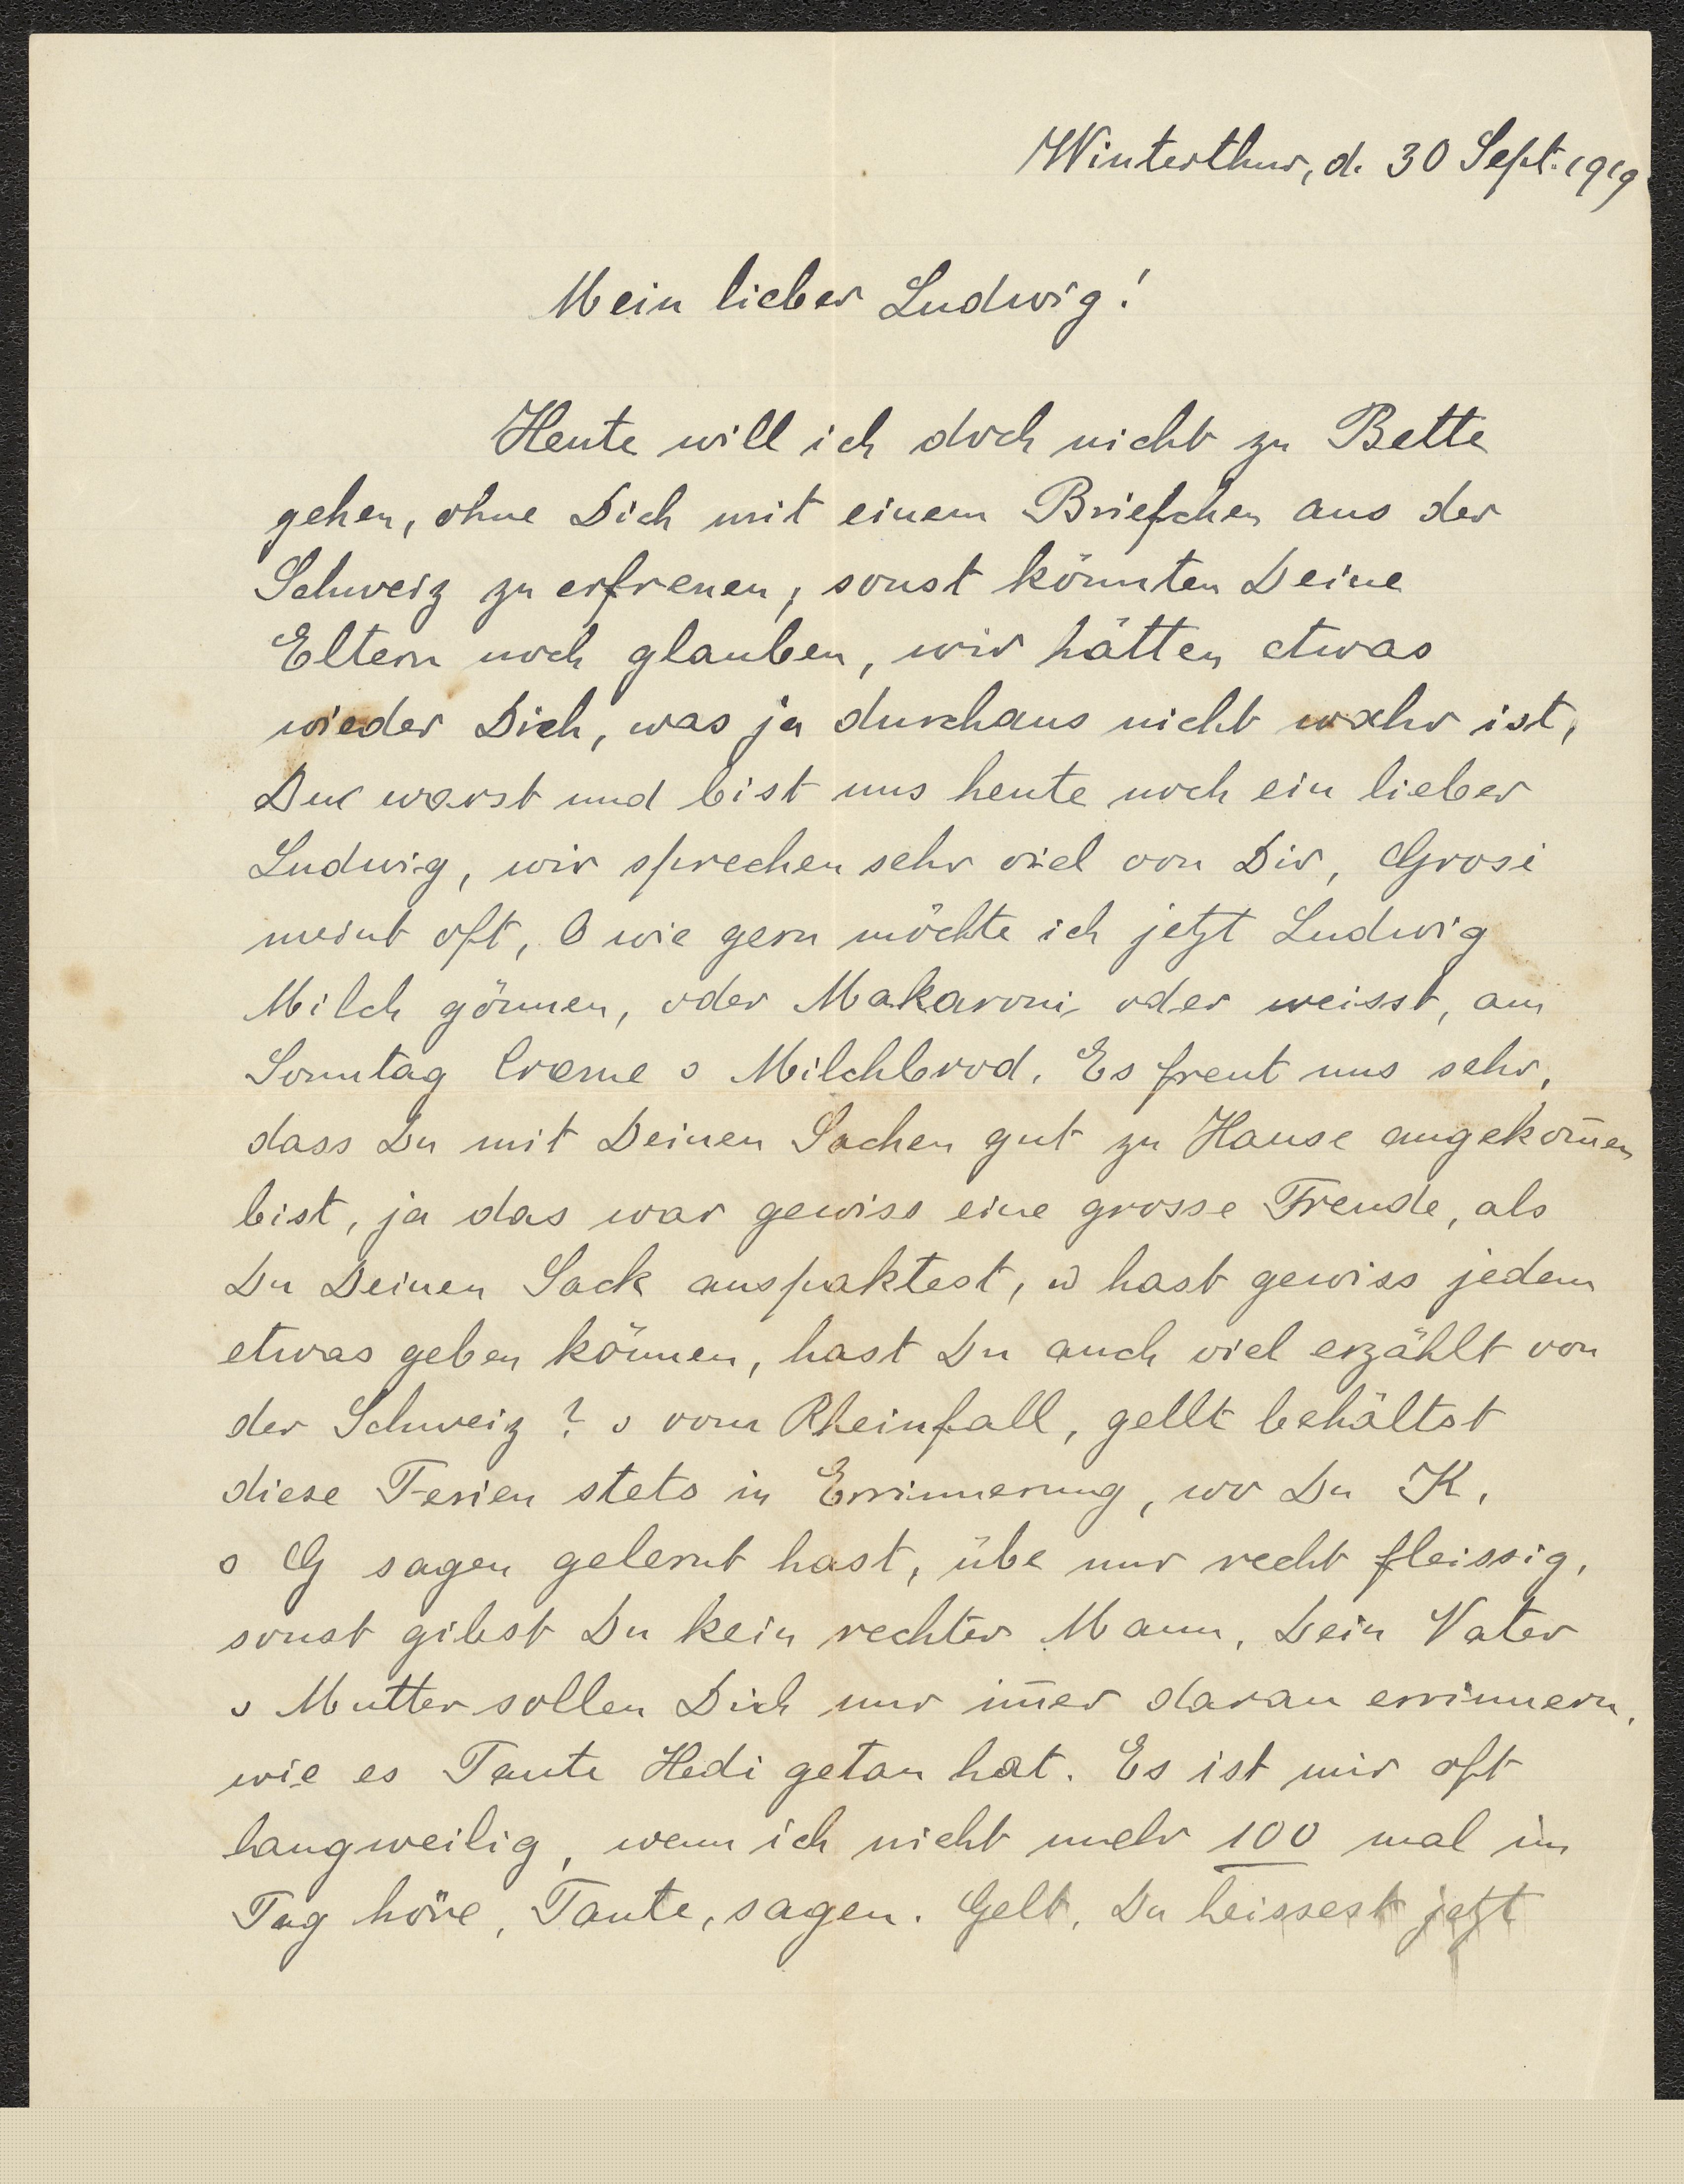 Winterthur, d. 30 Sept. 1919
Mein lieber Ludwig!
Heute will ich doch nicht zu Bette
gehen, ohne Dich mit einem Briefchen aus der
Schweiz zu erfreuen, sonst könnten Deine
Eltern noch glauben, wir hätten etwas
wieder Dich, was ja durchaus nicht wahr ist,
Du warst und bist uns heute noch ein lieber
Ludwig, wir sprechen sehr viel von Dir, Grosi
meint oft, O wie gern möchte ich jetzt Ludwig
Milch gönnen, oder Makaroni oder weisst, am
Sonntag Creme s Milchbrod. Es freut uns sehr,
dass Du mit Deinen Sachen gut zu Hause angekom̅en
bist, ja das war gewiss eine grosse Freude, als
Du Deinen Sack auspaktest, u hast gewiss jedem
etwas geben können, hast Du auch viel erzählt von
der Schweiz? s vom Rheinfall, gellt behältst
diese Ferien stets in Errinnerung, wo Du K.
s G sagen gelernt hast, übe nur recht fleissig,
sonst gibst Du kein rechter Mann, Dein Vater
s Mutter sollen Dich nur im̅er daran errinnern,
wie es Tante Hedi getan hat. Es ist mir oft
langweilig, wenn ich nicht mehr 100 mal im
Tag höre, Tante, sagen. Gelt, Du heissest jetzt